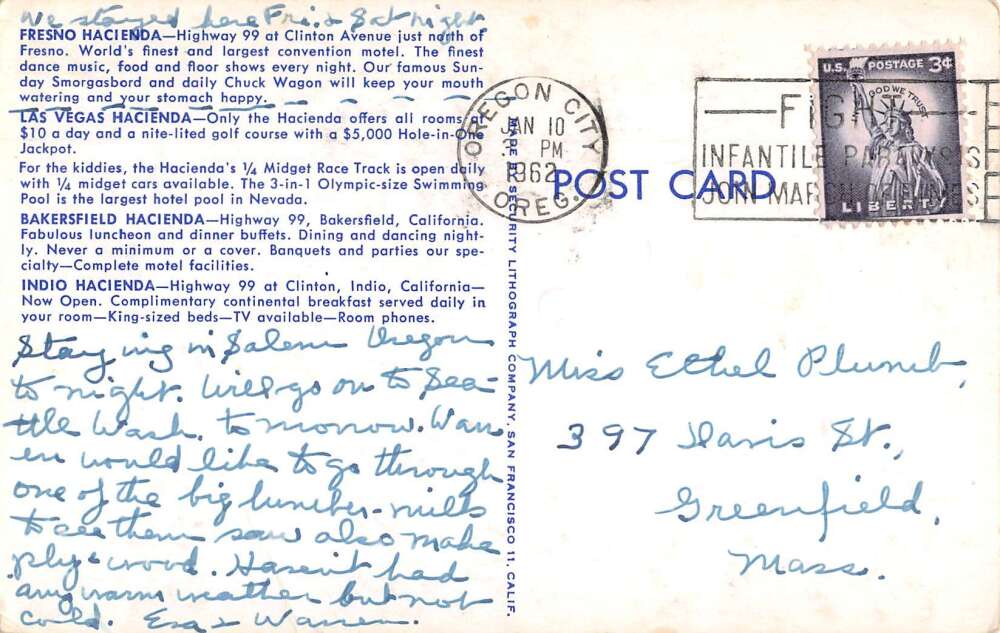 We stayed here Fri. & Sat night.
FRESNO HACIENDA—Highway 99 at Clinton Avenue just north of
Fresno. World's finest and largest convention motel. The finest
dance music, food and floor shows every night. Our famous Sun-
day Smorgasbord and daily Chuck Wagon will keep your mouth
watering and your stomach happy.
LAS VEGAS HACIENDA—Only the Hacienda offers all rooms at
$10 a day and a nite-lited golf course with a $5,000 Hole-in-One
Jackpot.
For the kiddies, the Hacienda's 1/4 Midget Race Track is open daily
with 1/4 midget cars available. The 3-in-1 Olympic-size Swimming
Pool is the largest hotel pool in Nevada.
BAKERSFIELD HACIENDA—Highway 99, Bakersfield, California.
Fabulous luncheon and dinner buffets. Dining and dancing night-
ly. Never a minimum or a cover. Banquets and parties our spe-
cialty—Complete motel facilities.
INDIO HACIENDA—Highway 99 at Clinton, Indio, California—
Now Open. Complimentary continental breakfast served daily in
your room—King-sized beds—TV available—Room phones.
Staying in Salem Oregon
to night. Will go on to Sea-
ttle Wash. to morrow. Warr
en would like to go through
one of the big lumber mills
to see them saw also make
ply wood. Haven't had
any warm weather but not
cold. Esa & Warren.
MADE BY SECURITY LITHOGRAPH COMPANY, SAN FRANCISCO 11, CALIF.
OREGON CITY
JAN 10
PM
1962
OREG.
POST CARD
FIGHT
INFANTILE PARALYSIS
JOIN MARCH OF DIMES
U.S. POSTAGE 3¢
IN GOD WE TRUST
LIBERTY
Miss Ethel Plumb,
397 Davis St.,
Greenfield,
Mass.